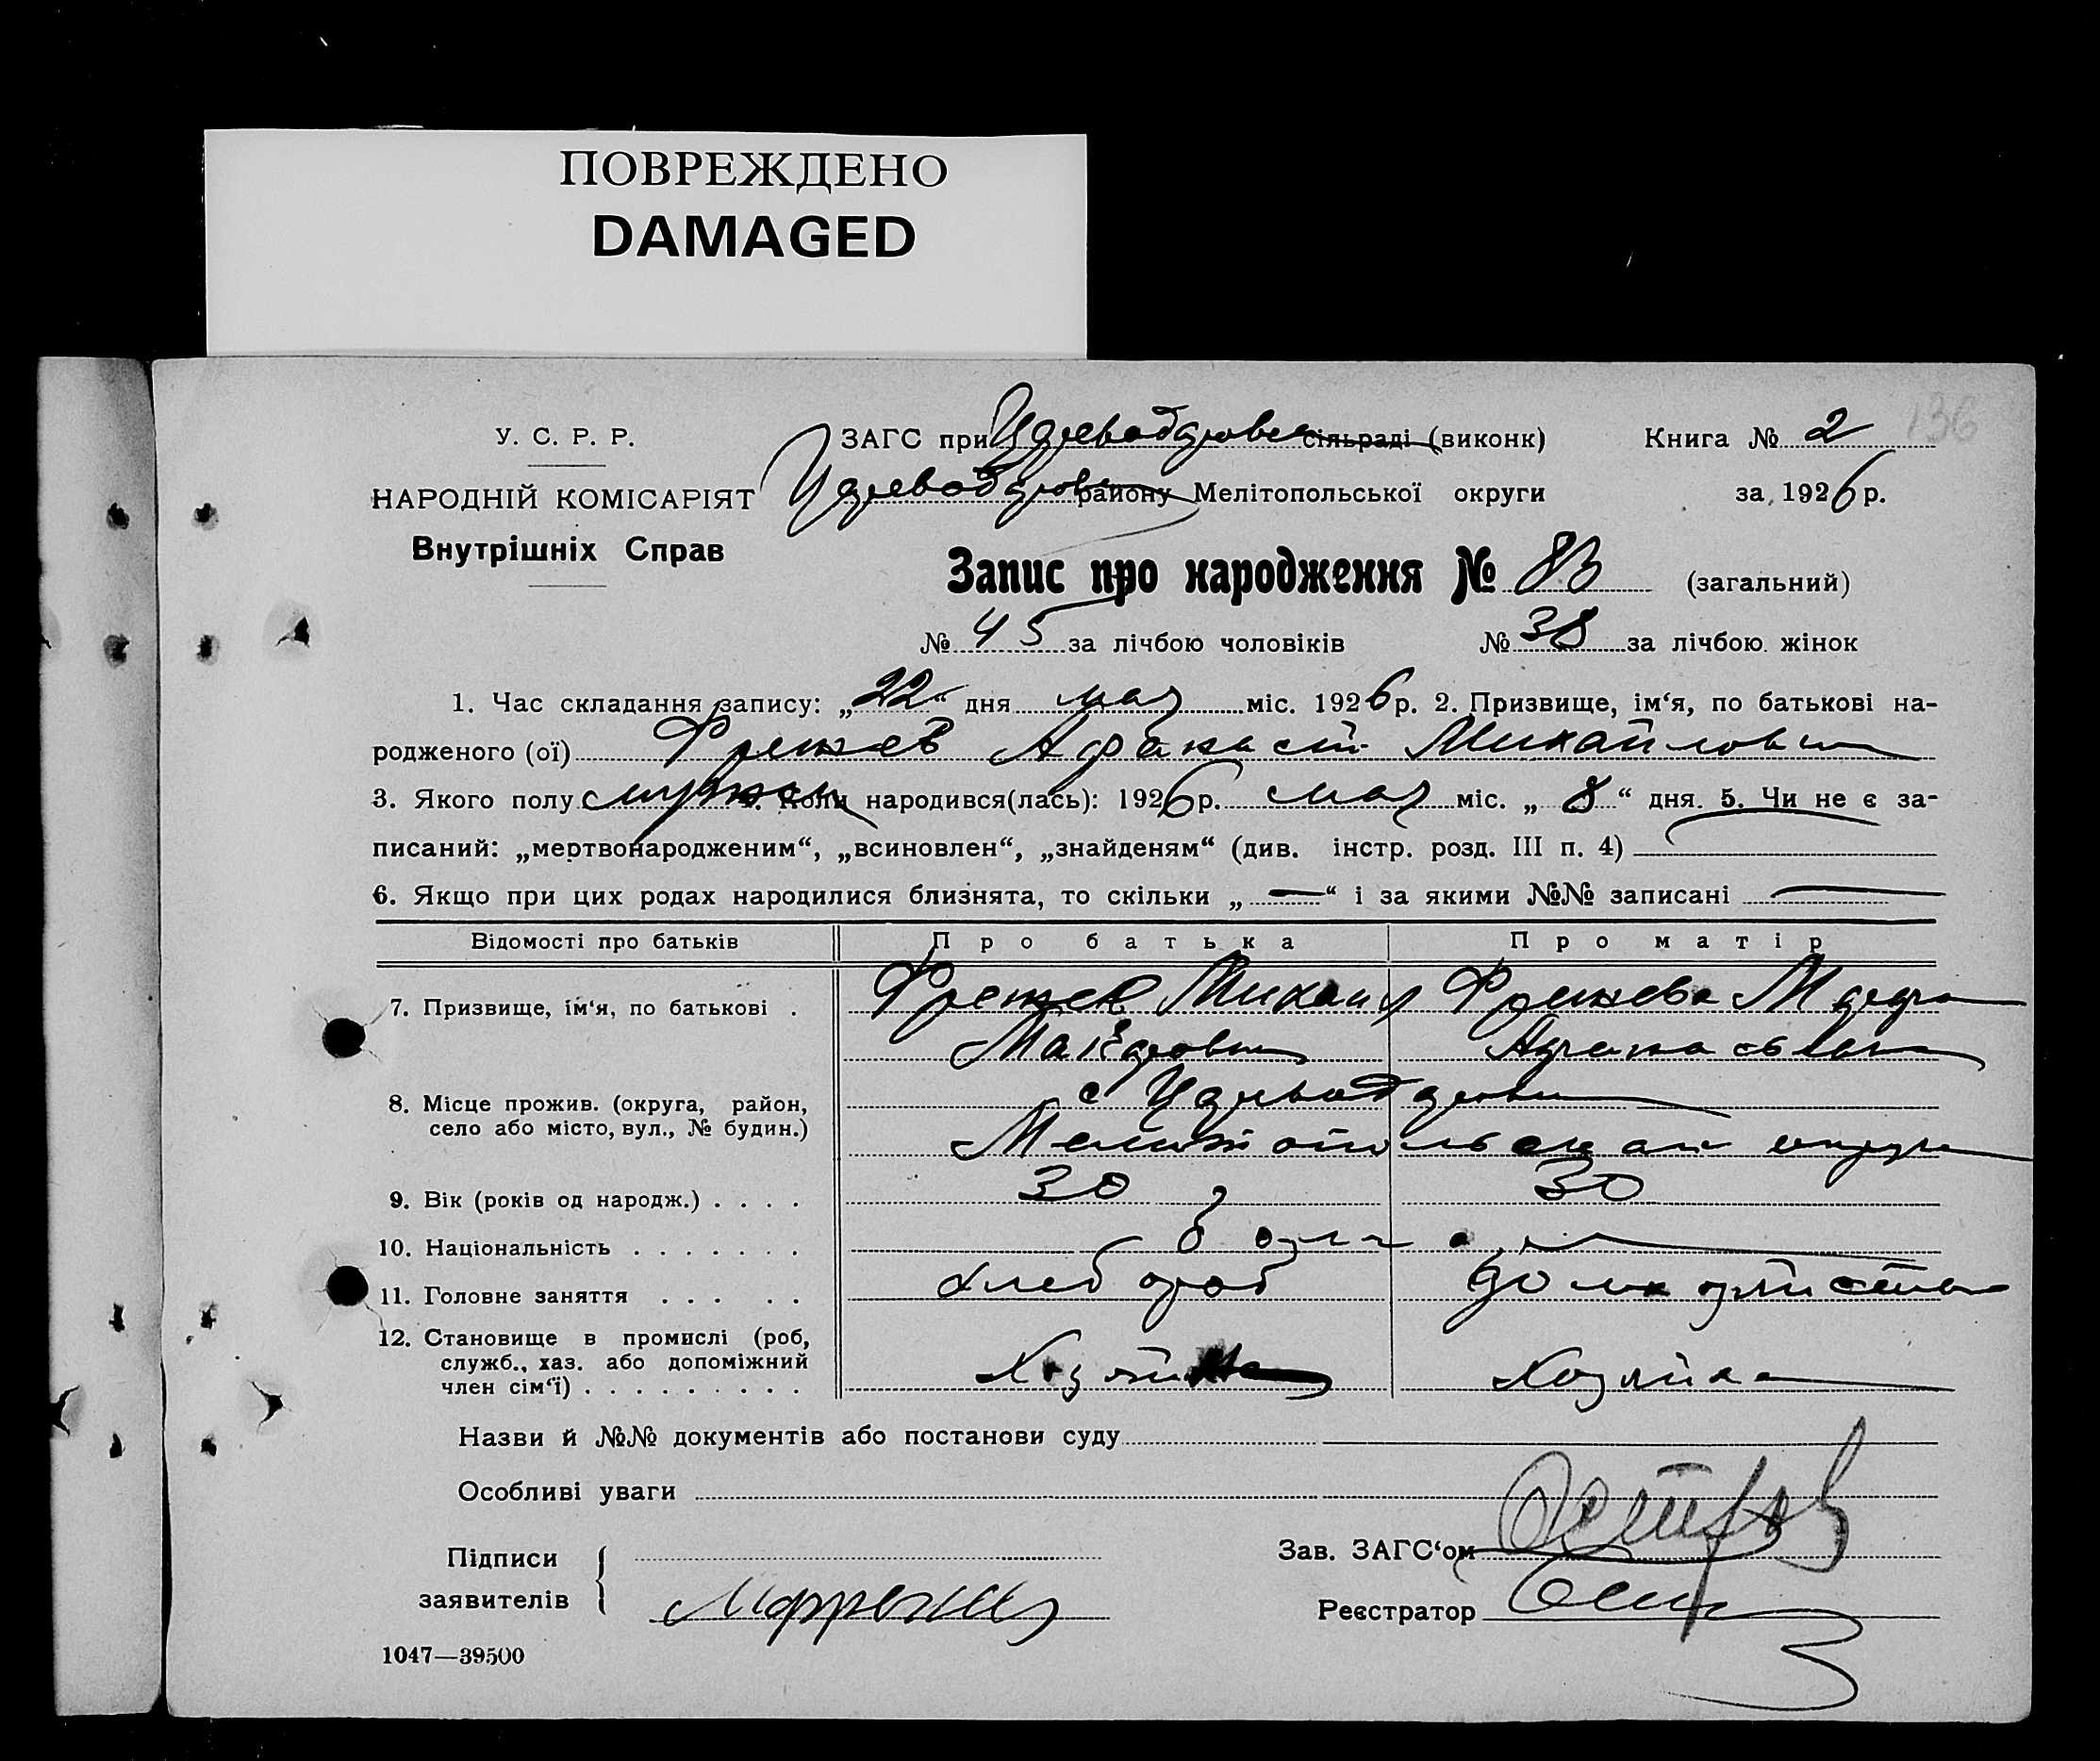 ПОВРЕЖДЕНО
DAMAGED
136
У. С. Р. Р.
НАРОДНІЙ КОМІСАРІЯТ
Внутрішніх Справ
ЗАГС при сільраді (виконк) Книга № 2
району Мелітопольської округи за 1926 р.
Запис про народження № 83 (загальний)
№ 45 за лічбою чоловіків № 38 за лічбою жінок
1. Час складання запису: „22“ дня мая міс. 1926 р. 2. Призвище, ім‘я, по батькові на-
родженого (ої) Афанасий Михайлович
3. Якого полу мужск 4. Коли народився(лась): 1926 р. мая міс. „8“ дня. 5. Чи не є за-
писаний: „мертвонародженим“, „всиновлен“, „знайденям“ (див. інстр. розд. III п. 4)
6. Якщо при цих родах народилися близнята, то скільки „—“ і за якими №№ записані —
Відомості про батьків Про батька Про матір
7. Призвище, ім‘я, по батькові . Михаил
8. Місце прожив. (округа, район,
село або місто, вул., № будин.)
с
Мелитопольской округи
9. Вік (років од народж.) . . . . 30 30
10. Національність . . . . . . . болгары
11. Головне заняття . . . . . хлебороб
12. Становище в промислі (роб,
служб., хаз. або допоміжний
член сім‘ї) . . . . . . . . . Хозяин Хозяйка
Назви й №№ документів або постанови суду
Особливі уваги
Підписи
заявителів
Зав. ЗАГС‘ом
Реєстратор
1047—39500